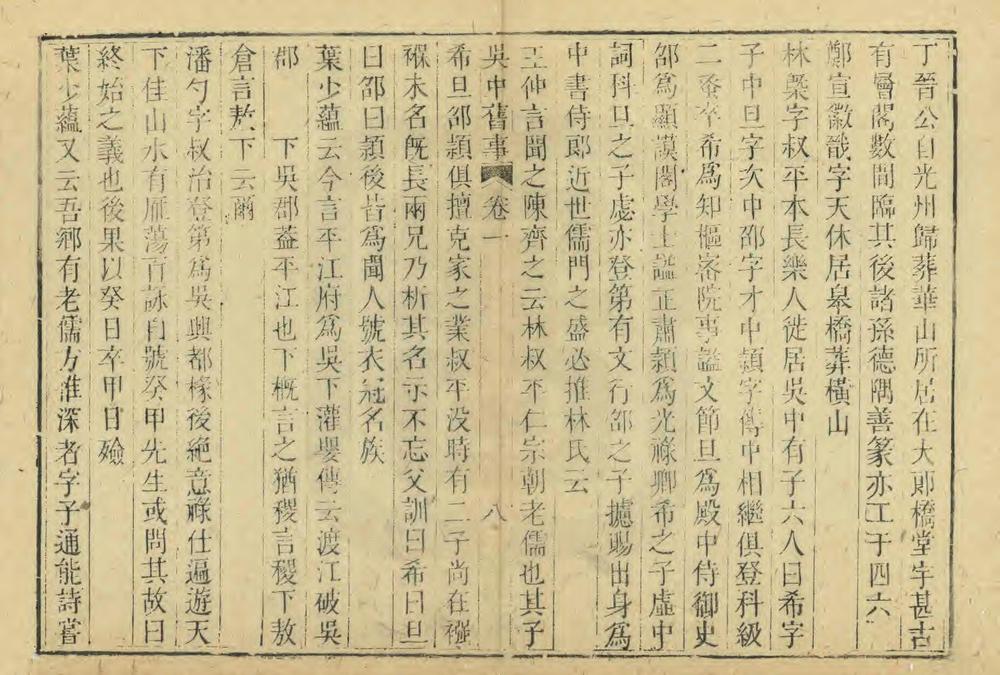 丁晉公自光州歸葬華山所居在大郎橋堂宇甚古
有層閣數間臨其後諸孫德隅善篆亦工于四六
鄭宣徽戩字天休居皋橋葬橫山
林㮣字叔平本長樂人徙居吳中有子六人曰希字
子中旦字次中邵字才中顈字傳中相繼俱登科級
二蚤卒希為知樞密院事諡文節旦為殿中侍御史
邵為顯謨閣學士諡正肅顈為光祿卿希之子虛中
詞科旦之子慮亦登第有文行邵之子攄賜出身為
中書侍郎近世儒門之盛必推林氏云
王仲言聞之陳齊之云林叔平仁宗朝老儒也其子
吳中舊事 卷一 八
希旦邵顈俱擅克家之業叔平沒時有二子尚在襁
褓未名旣長兩兄乃析其名示不忘父訓曰希曰旦
曰邵曰顈後皆為聞人號衣冠名族
葉少蘊云今言平江府為吳下灌嬰傳云渡江破吳
郡 下吳郡葢平江也下概言之猶稷言稷下敖
倉言敖下云爾
潘勺字叔治登第為吳興都掾後絕意祿仕遍遊天
下佳山水有雁蕩百詠自號癸甲先生或問其故曰
終始之義也後果以癸日卒甲日殮
葉少蘊又云吾鄉有老儒方惟深者字子通能詩嘗